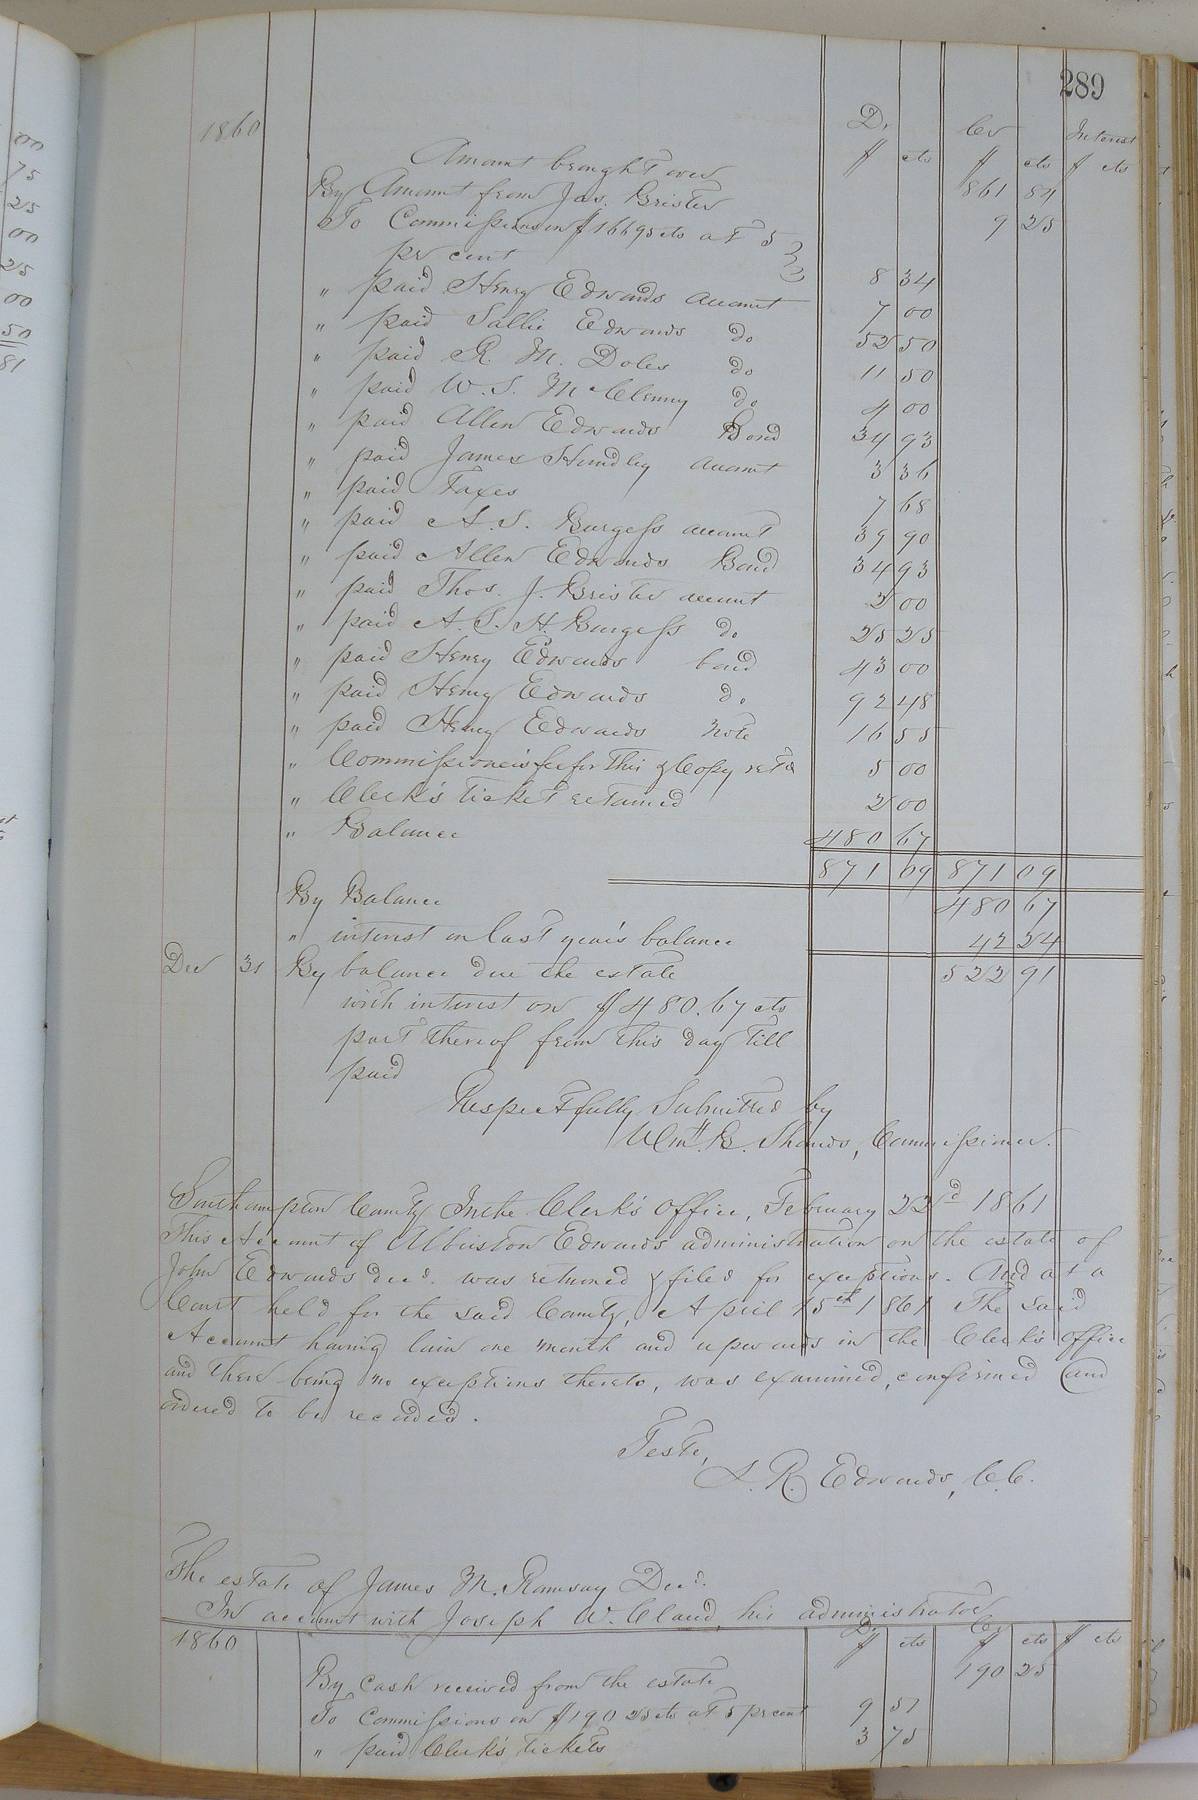 00
75
25
00
25
00
50
81
289
1860 D. Cr Interest
$ cts $ cts $ cts
Amount brought over 861 84
By Amount from Jas. Brister 9 25
To Commissions on $166 95 cts at 5
per cent 8 34
" paid Henry Edwards account 7 00
" paid Sallie Edwards do 52 50
" paid R. M. Doles do 11 50
" paid W. S. McClenny do 4 00
" paid Allen Edwards Bond 34 93
" paid James Hundley account 3 36
" paid Taxes 7 68
" paid A. S. Burgess account 39 90
" paid Allen Edwards Bond 34 93
" paid Thos. J. Brister account 2 00
" paid A. S. H. Burgess do 25 25
" paid Henry Edwards bond 43 00
" paid Henry Edwards do 92 48
" paid Henry Edwards note 16 55
" Commissioner's fee for this & Copy retd 5 00
" Clerk's ticket retained 2 00
" Balance 480 67
871 09 871 09
By Balance 480 67
" interest on last year's balance 42 24
Dec 31 By balance due the estate 522 91
with interest on $480.67 cts
part thereof from this day till
paid
Respectfully Submitted by
Wm. B. Shands, Commissioner.
Southampton County In the Clerk's Office, February 22d 1861
This Account of Albriston Edwards administration on the estate of
John Edwards decd. was returned & filed for exceptions. And at a
Court held for the said County, April 15th 1861 The said
Account having lain one month and upwards in the Clerk's office
and there being no exceptions thereto, was examined, confirmed and
ordered to be recorded.
Teste,
L. R. Edwards, C.C.
The estate of James M. Ramsay Decd.
In account with Joseph W. Claud, his administrator
D. Cr
1860 $ cts $ cts $ cts
By Cash received from the estate 190 25
To Commissions on $190 25 cts at 5 per cent 9 51
" paid Clerk's tickets 3 75